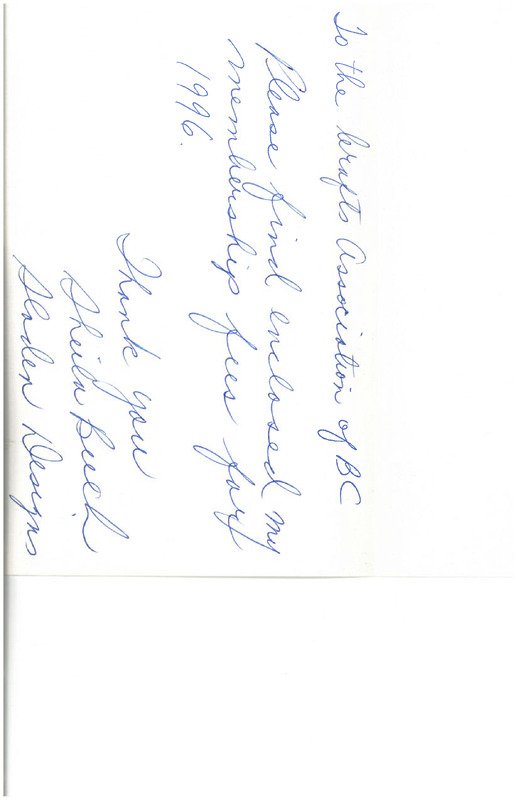 To the Crafts Association of BC
Please find enclosed my
membership fees for
1996.
Thank you
Sheila
Sladen Designs